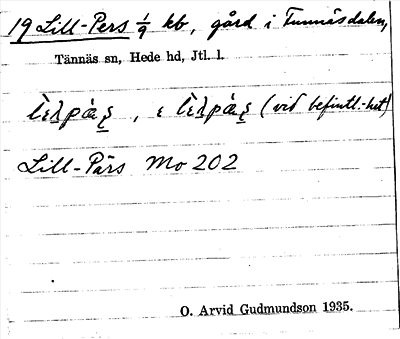 19 Lill-Pers 1/9 kb, gård i Tunnäsdalen,
Tännäs sn, Hede hd, Jtl. l.
(vid befintl.-het)
Lill-Pärs Mo 202
O. Arvid Gudmundson 1935.